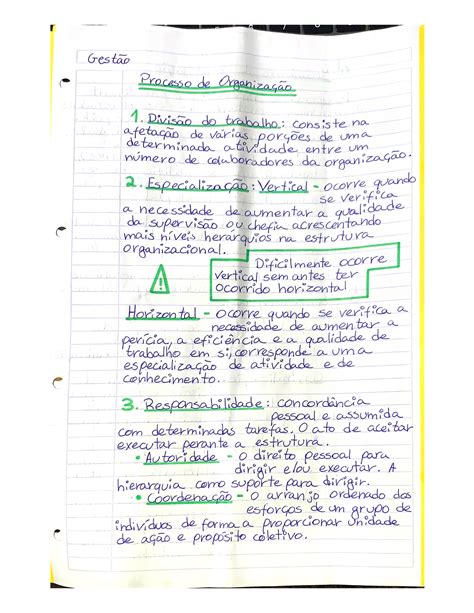 Gestão
Processo de Organização
1. Divisão do trabalho: consiste na
afetação de várias porções de uma
determinada atividade entre um
número de colaboradores da organização.
2. Especialização: Vertical - ocorre quando
se verifica
a necessidade de aumentar a qualidade
da supervisão ou chefia acrescentando
mais níveis herárquios na estrutura
organizacional.
Dificilmente ocorre
vertical sem antes ter
ocorrido horizontal
Horizontal - ocorre quando se verifica a
necessidade de aumentar a
perícia, a eficiência e a qualidade de
trabalho em si, corresponde a uma
especialização de atividade e de
conhecimento.
3. Responsabilidade: concordância
pessoal e assumida
com determinadas tarefas. O ato de aceitar
executar perante a estrutura.
• Autoridade - o direito pessoal para
dirigir e/ou executar. A
hierarquia como suporte para dirigir.
• Coordenação - o arranjo ordenado dos
esforços de um grupo de
indivíduos de forma a proporcionar unidade
de ação e propósito coletivo.